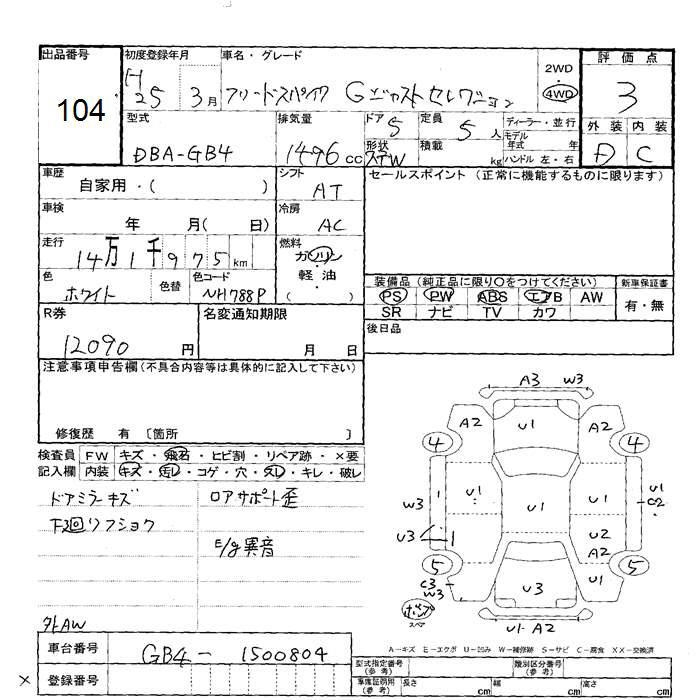 出品番号
104
初度登録年月
H25 3月
車名・グレード
フリードスパイク Gジャストセレクション
2WD
4WD
評価点
3
外装 内装
D C
型式
DBA-GB4
排気量
1496 cc
ドア 5
定員 5人
ディーラー・並行
モデル年式 年
形状 STW
積載 kg
ハンドル 左・右
車歴
自家用・( )
シフト
AT
セールスポイント (正常に機能するものに限ります)
車検
年 月( 日)
冷房
AC
走行
14万1千975km
燃料
ガソリン
・
軽油
( )
色
ホワイト
色替
色コード
NH788P
装備品 (純正品に限り○をつけてください)
新車保証書
PS PW ABS エアB AW
有・無
SR ナビ TV カワ
R券
12090 円
名変通知期限
月 日
後日品
注意事項申告欄(不具合内容等は具体的に記入して下さい)
修復歴 有 〔箇所 〕
検査員 FW キズ・飛石・ヒビ割・リペア跡・×要
記入欄 内装 キズ・汚レ・コゲ・穴・スレ・キレ・破レ
ドアミラーキズ
下廻リフショク
ロアサポート歪
E/g異音
外AW
A3 W3
A2 U1 A2
4 4
U1 U1 U1
U1
C2
W3
U3
U2
A2
5 5
C3
W3
U3 U1
スペア
U1-A2
A-キズ E-エクボ U-凹み W-補修跡 S-サビ C-腐食 XX-交換済
車台番号
GB4-1500804
登録番号
×
型式指定番号
(参考)
類別区分番号
(参考)
車庫証明用
(参考)
長さ cm
幅 cm
高さ cm